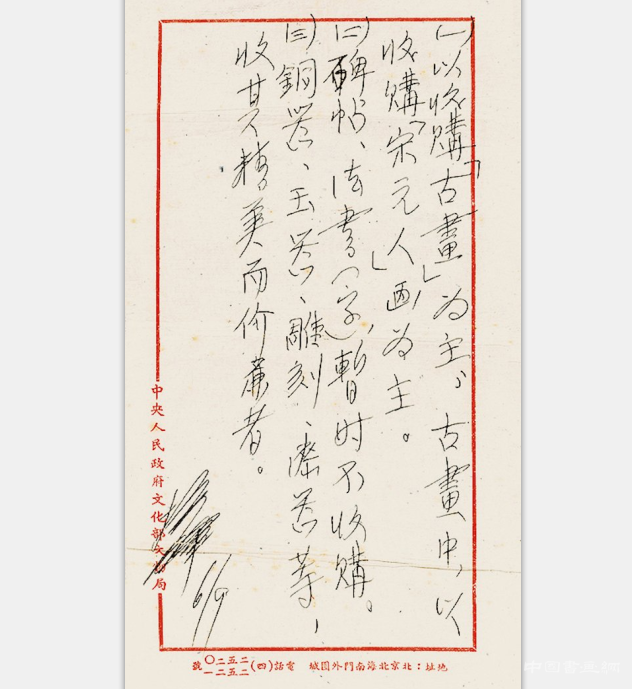 (一)以收購「古畫」为主,古畫中,以
收購「宋元人画」为主。
(二)碑帖、法書(字),暫时不收購。
(三)銅器、玉器、雕刻、漆器等,
收其精美而价廉者。
6/9
中央人民政府文化部文物局
地址:北京北海南門外團城 電話(四)二五二〇 二五二一號